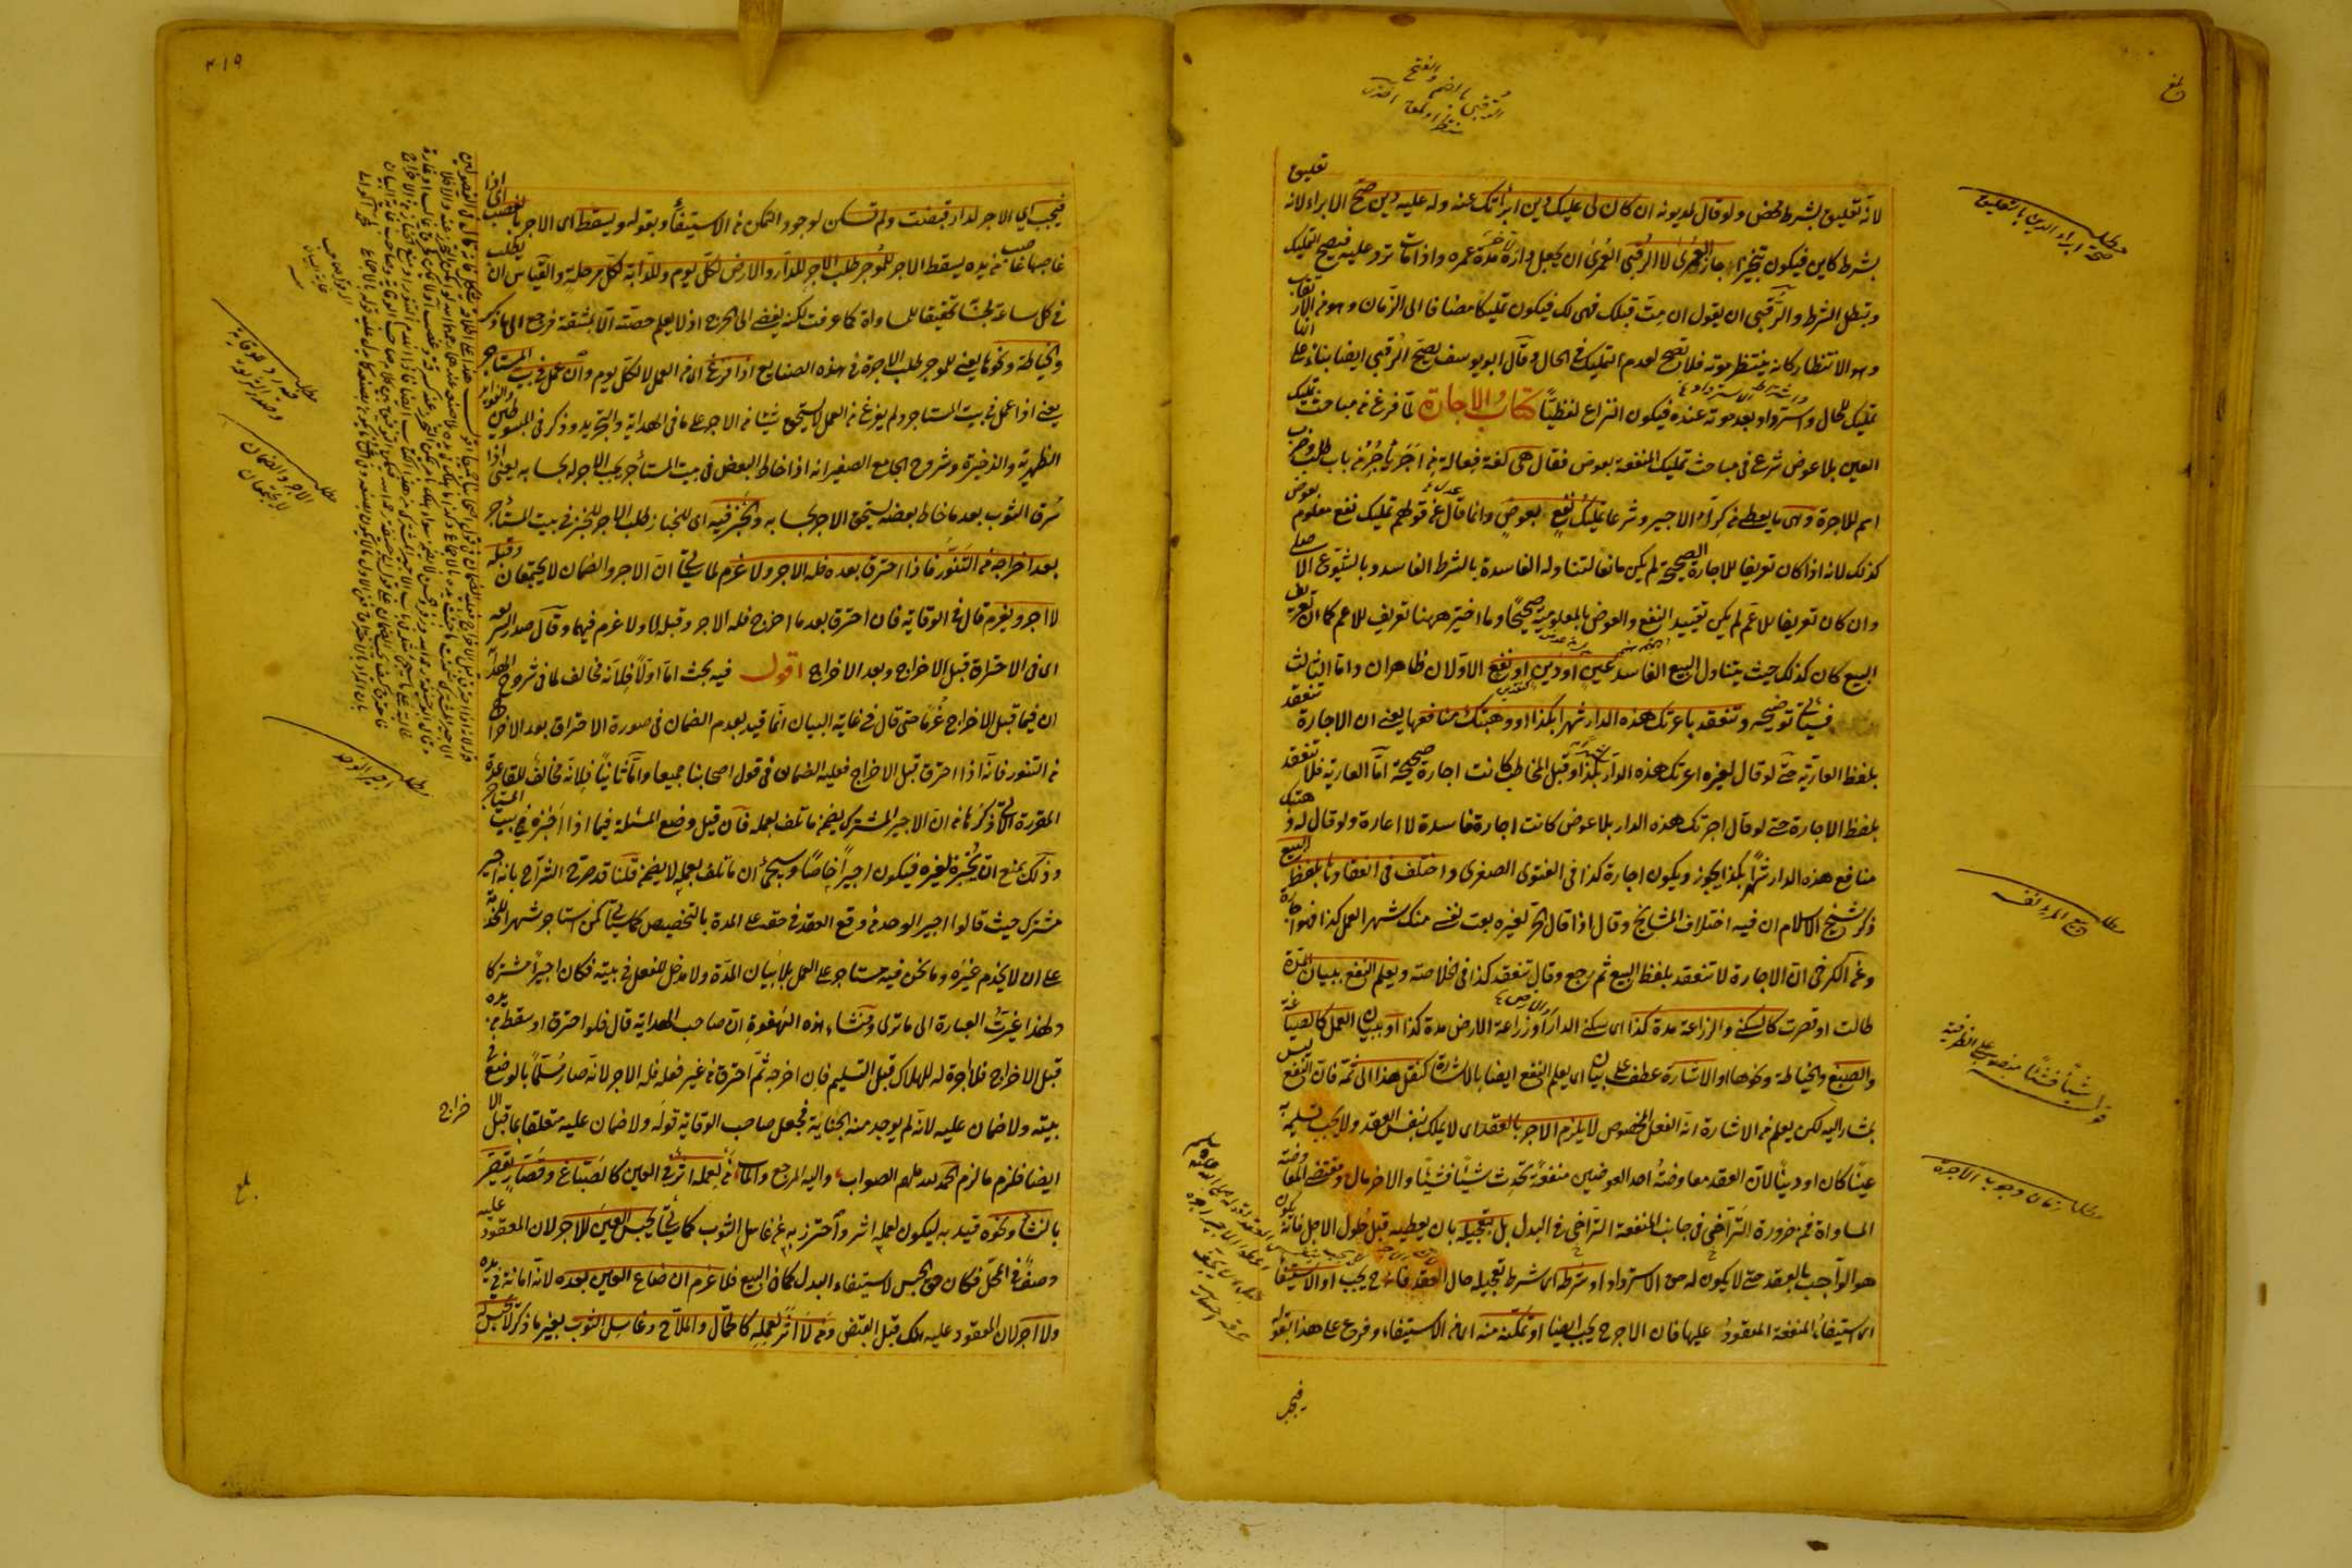 لانه تعليق بشرط محض ولو قال لمديونه ان كان لى عليك دين ابرأتك عنه وله عليه دين صح الابراء لانه تعليق
بشرط كاين فيكون تنجيزا جاز العمرى لا الرقبى العمرى ان يجعل داره مدة عمره واذا مات ترد عليه فيصح التمليك
ويبطل الشرط والرقبى ان يقول ان مت قبلك فهى لك فيكون تمليكا مضافا الى الزمان وهو من الارتقاب
وهو الانتظار كانه ينتظر موته فلا تصح لعدم التمليك فى الحال وقال ابو يوسف يصح الرقبى ايضا بناء على انها
تمليك للحال واسترداد بعد موته عنده فيكون النزاع لفظيا كتاب الاجارة لما فرغ من مباحث تمليك
العين بلا عوض شرع فى مباحث تمليك المنفعة بعوض فقال هى لغة فعالة من اجر يأجر من باب طلب وضرب
اسم للاجرة وهى ما يعطى من كراء الاجير وشرعا تمليك نفع بعوض وانما قال عدل عن قولهم تمليك نفع معلوم بعوض
كذلك لانه اذا كان تعريفا للاجارة الصحيحة لم يكن مانعا لتناوله الفاسدة بالشرط الفاسد وبالشيوع الاصلى
وان كان تعريفا للاعم لم يكن تقييد النفع والعوض بالمعلومية صحيحا وما اختير ههنا تعريف للاعم كما ان تعريف
البيع كان كذلك حيث يتناول البيع الفاسد بعين او دين او نفع الاولان ظاهران واما الثالث
فسيأتى توضيحه وتنعقد باعرتك هذه الدار شهرا بكذا او وهبتك منافعها يعنى ان الاجارة تنعقد
بلفظ العارية حتى لو قال لغيره اعرتك هذه الدار بكذا وقبل المخاطب كانت اجارة صحيحة اما العارية فلا تنعقد
بلفظ الاجارة حتى لو قال اجرتك هذه الدار بلا عوض كانت اجارة فاسدة لا اعارة ولو قال له وهبتك
منافع هذه الدار شهرا بكذا يجوز ويكون اجارة كذا فى الفتوى الصغرى واختلف فى انعقادها بلفظ البيع
ذكر شيخ الاسلام ان فيه اختلاف المشايخ وقال اذا قال الحر لغيره بعت نفسى منك شهرا لعمل كذا فهو اجارة
وعن الكرخى ان الاجارة لا تنعقد بلفظ البيع ثم رجع وقال تنعقد كذا فى الخلاصة ويعلم النفع ببيان المدة
طالت او قصرت كالسكنى والزراعة مدة كذا اى سكنى الدار او زراعة الارض مدة كذا او ببيان العمل كالصياغة
والصبغ والخياطة ونحوها او الاشارة عطف على بيان اى يعلم النفع ايضا بالاشارة كنقل هذا الى ثمه فان النفع ليس
بمشار اليه لكن يعلم من الاشارة انه الفعل المخصوص لا يلزم الاجر بالعقد اى لا يملك بنفس العقد ولا يجب تسليمه به
عينا كان او دينا لان العقد معاوضة احد العوضين منفعة تحدث شيئا فشيئا والاخر مال ومقتضى المعاوضة
المساواة فمن ضرورة التراخى فى جانب المنفعة التراخى فى البدل بل بتعجيله بان يعطيه قبل حلول الاجل فانه يكون
هو الواجب بالعقد حتى لا يكون له حق الاسترداد او شرطه اى شرط تعجيله حال العقد فانه ح يجب او الاستيفاء
اى استيفاء المنفعة المعقود عليها فان الاجر ح يجب ايضا او تمكنه منه اى من الاستيفاء وفرع على هذا بقوله
فيجب
مطلب
صحة ابراء الدين بالتعليق
مطلب
بيع الحر نفسه
قوله شيئا فشيئا منصوب على الظرفية
مطلب زمان وجوب الاجرة
٣١٩
فيجب اى الاجر لدار قبضت ولم تسكن لوجود التمكن من الاستيفاء وبقوله ويسقط اى الاجر بالغصب اى اذا
غصبها غاصب من يده يسقط الاجر للموجر طلب الاجر للدار والارض لكل يوم وللدابة لكل مرحلة والقياس ان يطلب
فى كل ساعة بحسابه تحقيقا للمساواة كما عرفت لكنه يفضى الى الحرج اذ لا يعلم حصته الا بمشقة فرجع الى ما ذكر
والخياطة ونحوها يعنى للموجر طلب الاجرة فى هذه الصنايع اذا فرغ اى من العمل لا لكل يوم وان عمل فى بيت المستأجر
يعنى اذا عمل فى بيت المستاجر ولم يفرغ من العمل لا يستحق شيئا من الاجر على ما فى الهداية والتجريد وذكر فى المبسوطين
الظهيرية والذخيرة وشروح الجامع الصغير انه اذا خاط البعض فى بيت المستأجر يجب الاجر له بحسابه يعنى اذا
سرق الثوب بعد ما خاط بعضه يستحق الاجر بحسابه وللخبز فيه اى للخباز طلب الاجر للخبز فى بيت المستأجر
بعد اخراجه من التنور فاذا احترق بعده فله الاجر ولا غرم لما سيجئ ان الاجر والضمان لا يجتمعان وقبله
لا اجر ويغرم قال فى الوقاية فان احترق بعد ما اخرج فله الاجر وقبله لا ولا غرم فيهما وقال صدر الشريعة
اى فى الاحتراق قبل الاخراج وبعد الاخراج اقول فيه بحث اما اولا فلانه مخالف لما فى شروح الهداية
ان فيما قبل الاخراج غرما حتى قال فى غاية البيان انما قيد بعدم الضمان فى صورة الاحتراق بعد الاخراج
من التنور فانه اذا احترق قبل الاخراج فعليه الضمان فى قول اصحابنا جميعا واما ثانيا فلانه مخالف للقاعدة
المقررة الاتى ذكرها من ان الاجير المشترك يضمن ما تلف بعمله فان قيل وضع المسئلة فيما اذا خبزه فى بيت المستأجر
وذلك يمنع ان يخبز لغيره فيكون اجيرا خاصا وسيجئ ان ما تلف بعمله لا يضمن قلنا قد صرح الشراح بانه اجير
مشترك حيث قالوا اجير الوحد من وقع العقد فى حقه على المدة بالتخصيص كما سيأتى كمن استاجر شهرا للخدمة
على ان لا يخدم غيره وما نحن فيه مستاجر على العمل بلا بيان المدة ولا مدخل للفعل فى بيته فكان اجيرا مشتركا
ولهذا غيرت العبارة الى ما ترى ومنشاء هذه الهفوة ان صاحب الهداية قال فلو احترق او سقط من يده
قبل الاخراج فلا اجرة له للهلاك قبل التسليم فان اخرجه ثم احترق من غير فعله فله الاجر لانه صار مسلما بالوضع فى
بيته ولا ضمان عليه لانه لم يوجد منه الجناية فجعل صاحب الوقاية قوله ولا ضمان عليه متعلقا بما قبل الاخراج
ايضا فلزم ما لزم الحمد لله ملهم الصواب واليه المرجع والمآب من لعمله اثر فى العين كالصباغ وقصار يقصر
بالنشا ونحوه قيد به ليكون لعمله اثر واحترز به عن غاسل الثوب كما سيأتى يحبس العين للاجر لان المعقود عليه
وصف فى المحل فكان له حق الحبس لاستيفاء البدل كما فى البيع فلا غرم ان ضاع العين بعده لانه امانة فى يده
ولا اجر لان المعقود عليه هلك قبل القبض ومن لا اثر لعمله كالحمال والملاح وغاسل الثوب بغير ما ذكر لا يحبس
مطلب
الاجر والضمان
لا يجتمعان
مطلب
اجير الوحد